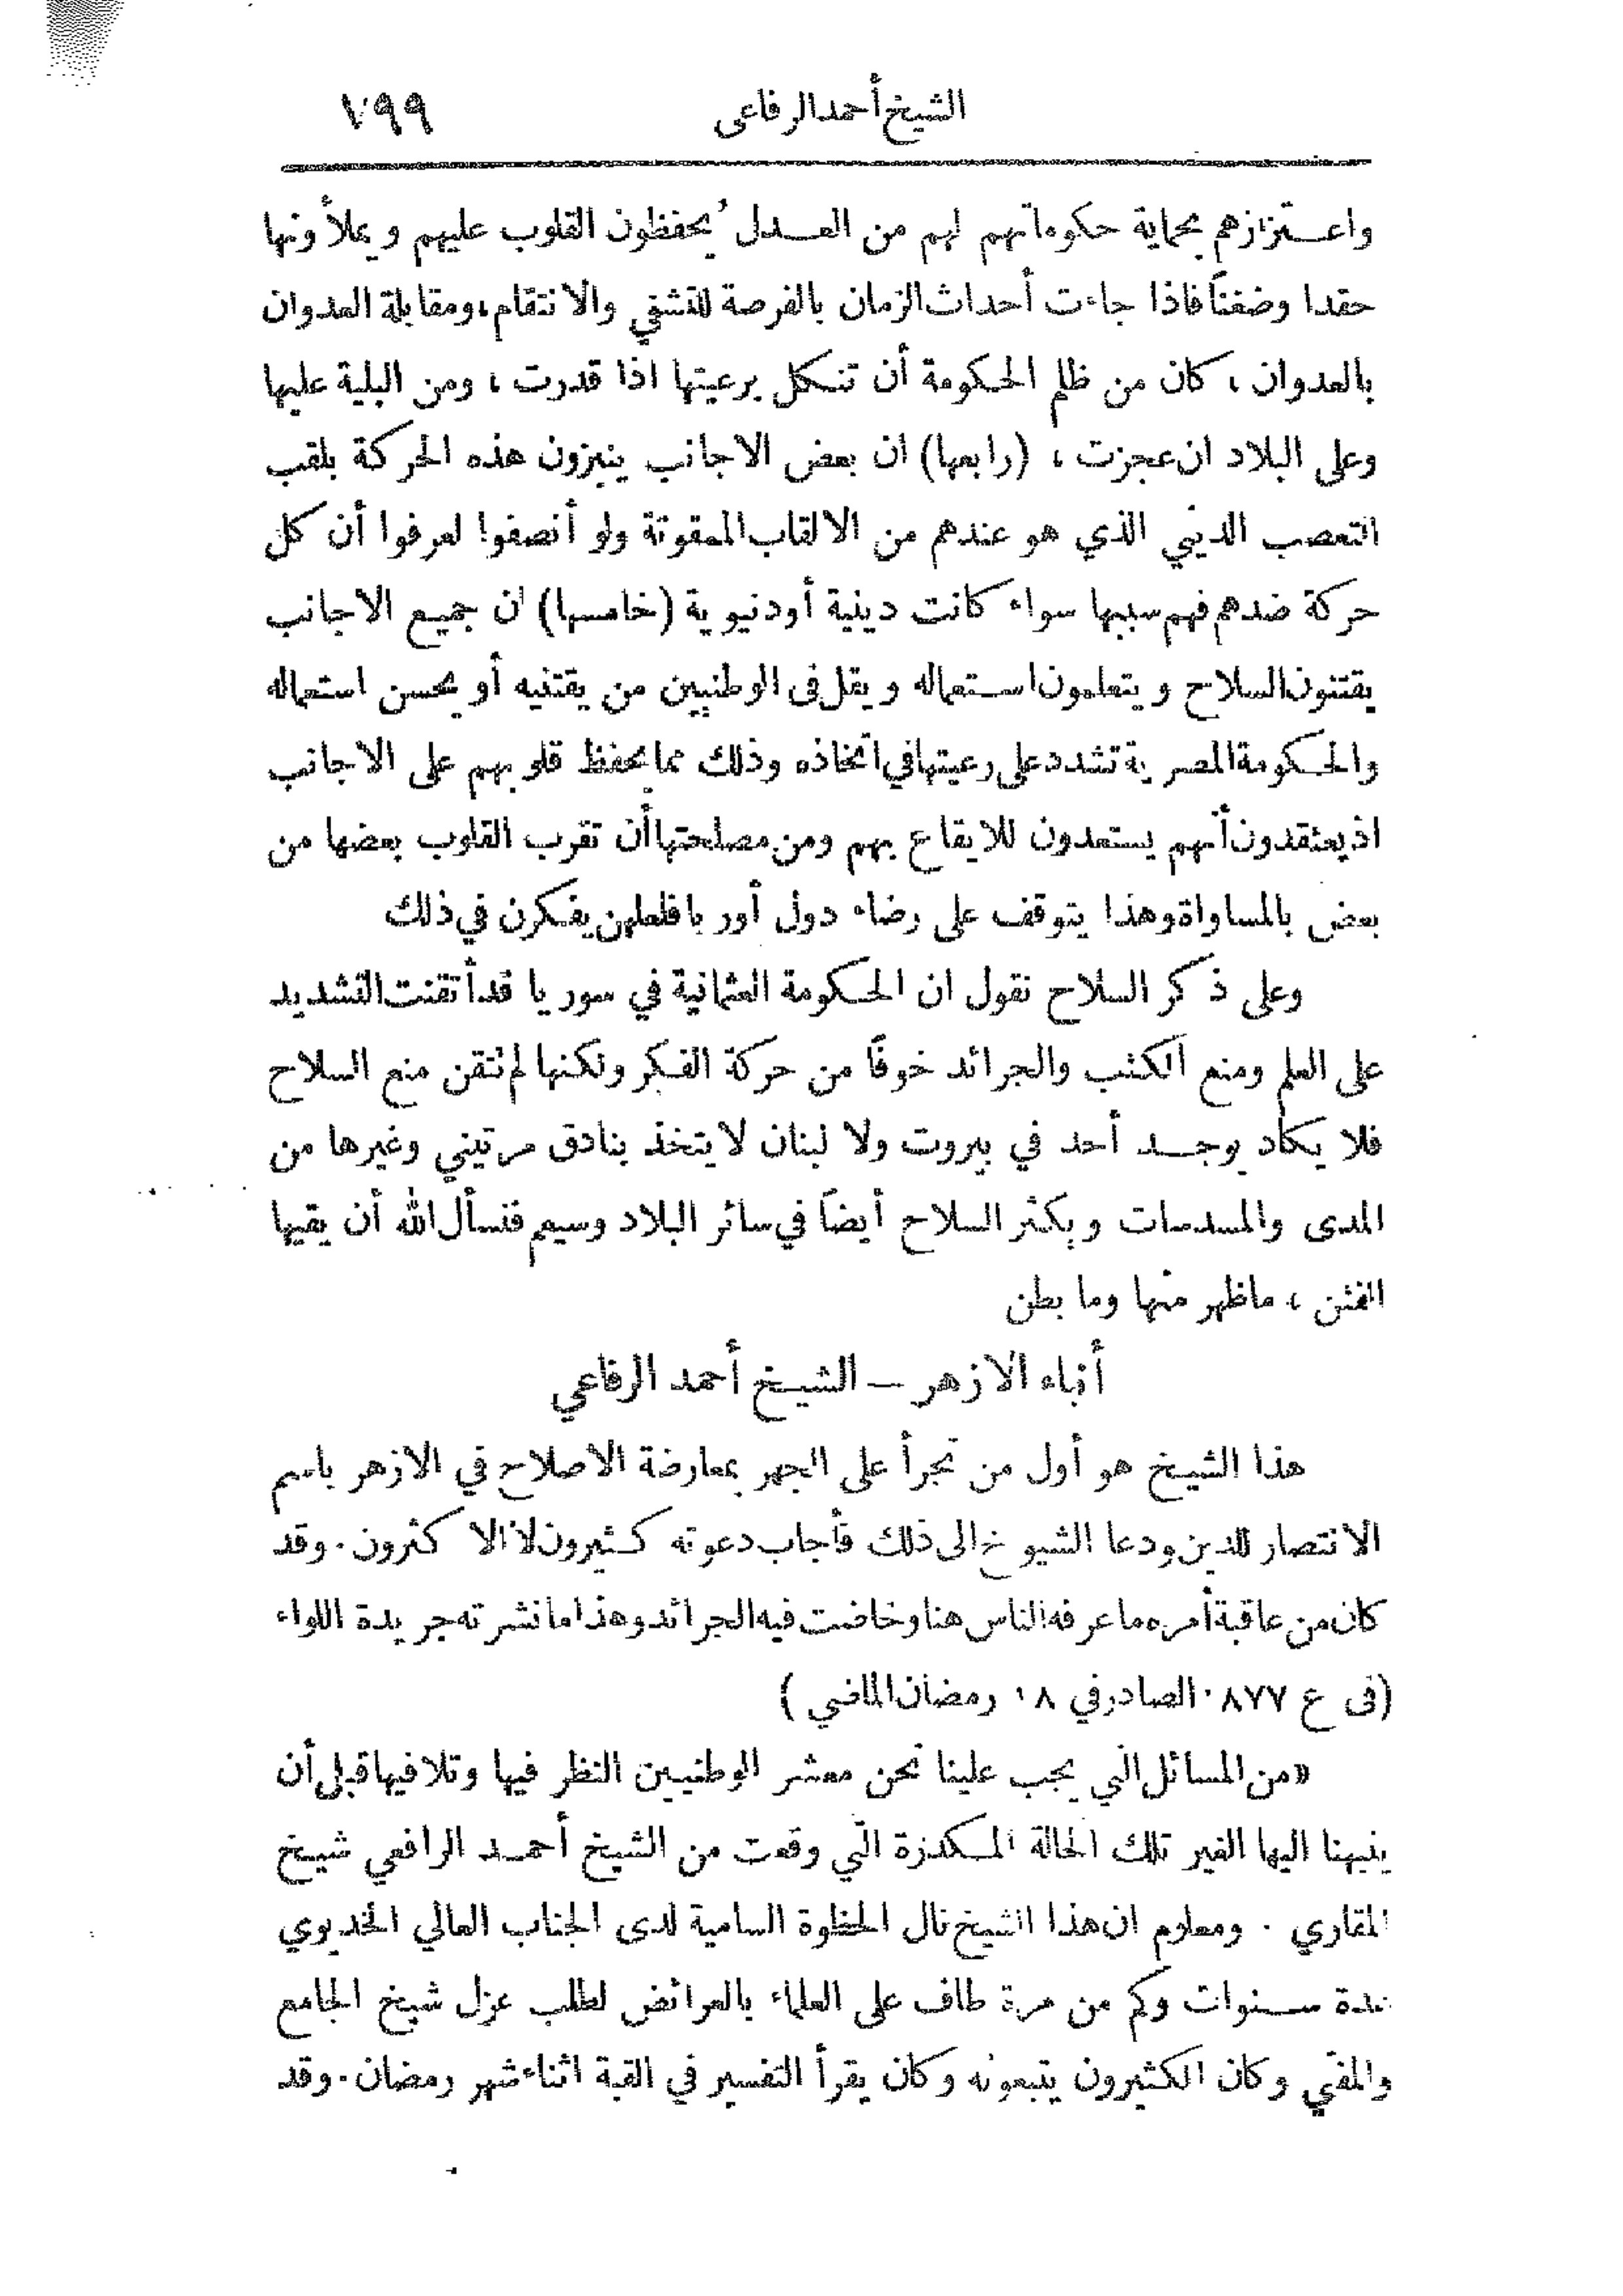 الشيخ أحمد الرفاعى ٧٩٩
واعتزازهم بحماية حكوماتهم لهم من العدل يُحفظون القلوب عليهم ويملأونها
حقدا وضغناً فاذا جاءت أحداث الزمان بالفرصة للتشفي والانتقام، ومقابلة العدوان
بالعدوان ، كان من ظلم الحكومة أن تنكل برعيتها اذا قدرت ، ومن البلية عليها
وعلى البلاد ان عجزت ، (رابعها) ان بعض الاجانب ينبزون هذه الحركة بلقب
التعصب الديني الذي هو عندهم من الالقاب الممقوتة ولو أنصفوا لعرفوا أن كل
حركة ضدهم فهم سببها سواء كانت دينية أو دنيوية (خامسها) ان جميع الاجانب
يقتنون السلاح ويتعلمون استعماله ويقل فى الوطنيين من يقتنيه أو يحسن استعماله
والحكومة المصرية تشدد على رعيتها في اتخاذه وذلك مما يحفظ قلوبهم على الاجانب
اذ يعتقدون أنهم يستعدون للايقاع بهم ومن مصلحتها أن تقرب القلوب بعضها من
بعض بالمساواة وهذا يتوقف على رضاء دول أوربا فلعلهن يفكرن في ذلك
وعلى ذكر السلاح نقول ان الحكومة العثمانية في سوريا قد أتقنت التشديد
على العلم ومنع الكتب والجرائد خوفاً من حركة الفكر ولكنها لم تتقن منع السلاح
فلا يكاد يوجد أحد في بيروت ولا لبنان لا يتخذ بنادق مرتيني وغيرها من
المدى والمسدسات ويكثر السلاح أيضاً في سائر البلاد وسيم فنسأل الله أن يقيها
الفتن ، ما ظهر منها وما بطن
أنباء الازهر — الشيخ أحمد الرفاعي
هذا الشيخ هو أول من تجرأ على الجهر بمعارضة الاصلاح في الازهر باسم
الانتصار للدين ودعا الشيوخ الى ذلك فأجاب دعوته كثيرون لا الا كثرون . وقد
كان من عاقبة أمره ما عرفه الناس هنا وخاضت فيه الجرائد وهذا ما نشرته جريدة اللواء
(فى ع ٨٧٧ الصادر في ١٨ رمضان الماضي )
«من المسائل التي يجب علينا نحن معشر الوطنيين النظر فيها وتلافيها قبل أن
ينبهنا اليها الغير تلك الحالة المكدرة التي وقعت من الشيخ أحمد الرافعي شيخ
المقاري . ومعلوم ان هذا الشيخ نال الحظوة السامية لدى الجناب العالي الخديوي
مدة سنوات وكم من مرة طاف على العلماء بالعرائض لطلب عزل شيخ الجامع
والمفتي وكان الكثيرون يتبعونه وكان يقرأ التفسير في القبة اثناء شهر رمضان . وقد